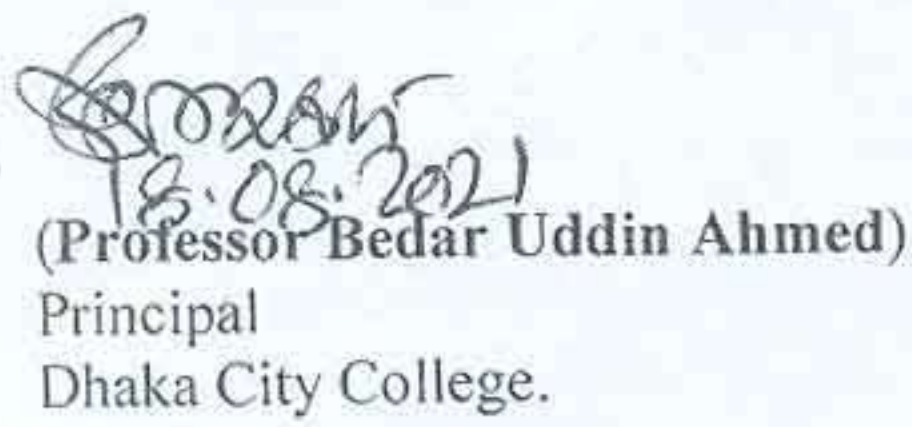 18.08.2021
(Professor Bedar Uddin Ahmed)
Principal
Dhaka City College.